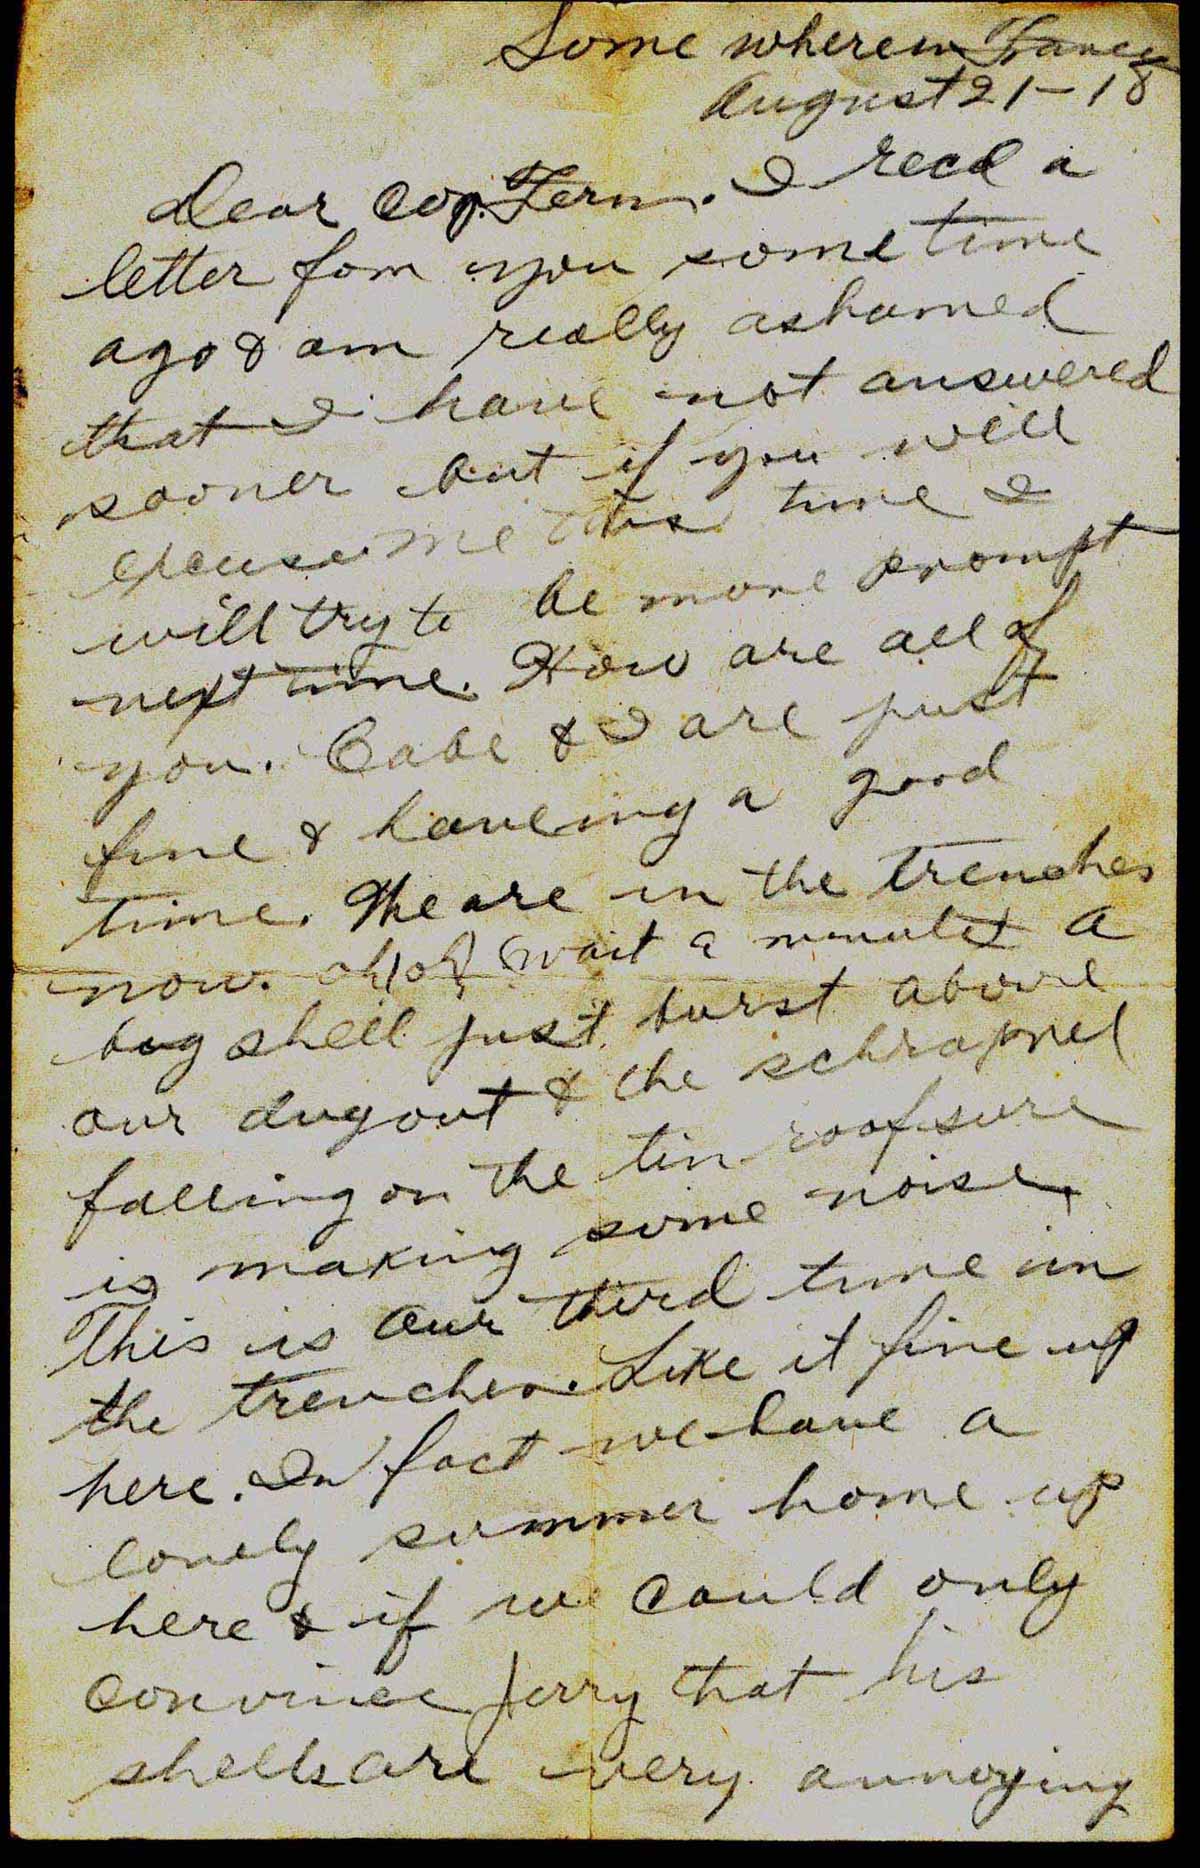 Some where in France
August 21-18
Dear Fern. I recd a
letter fom you some time
ago & am really ashamed
that I have not answered
sooner but if you will
excuse me this time I
will try to be more prompt
next time. How are all of
you. Babe & I are just
fine & haveing a good
time. We are in the trenches
now. wait a minute a
big shell just burst above
our dugout & the schrapnel
falling on the tin roof sure
is making some noise.
This is our third time in
the trenches. Like it fine up
here. In fact we have a
lovely summer home up
here & if we could only
convince Jerry that his
shells are very annoying